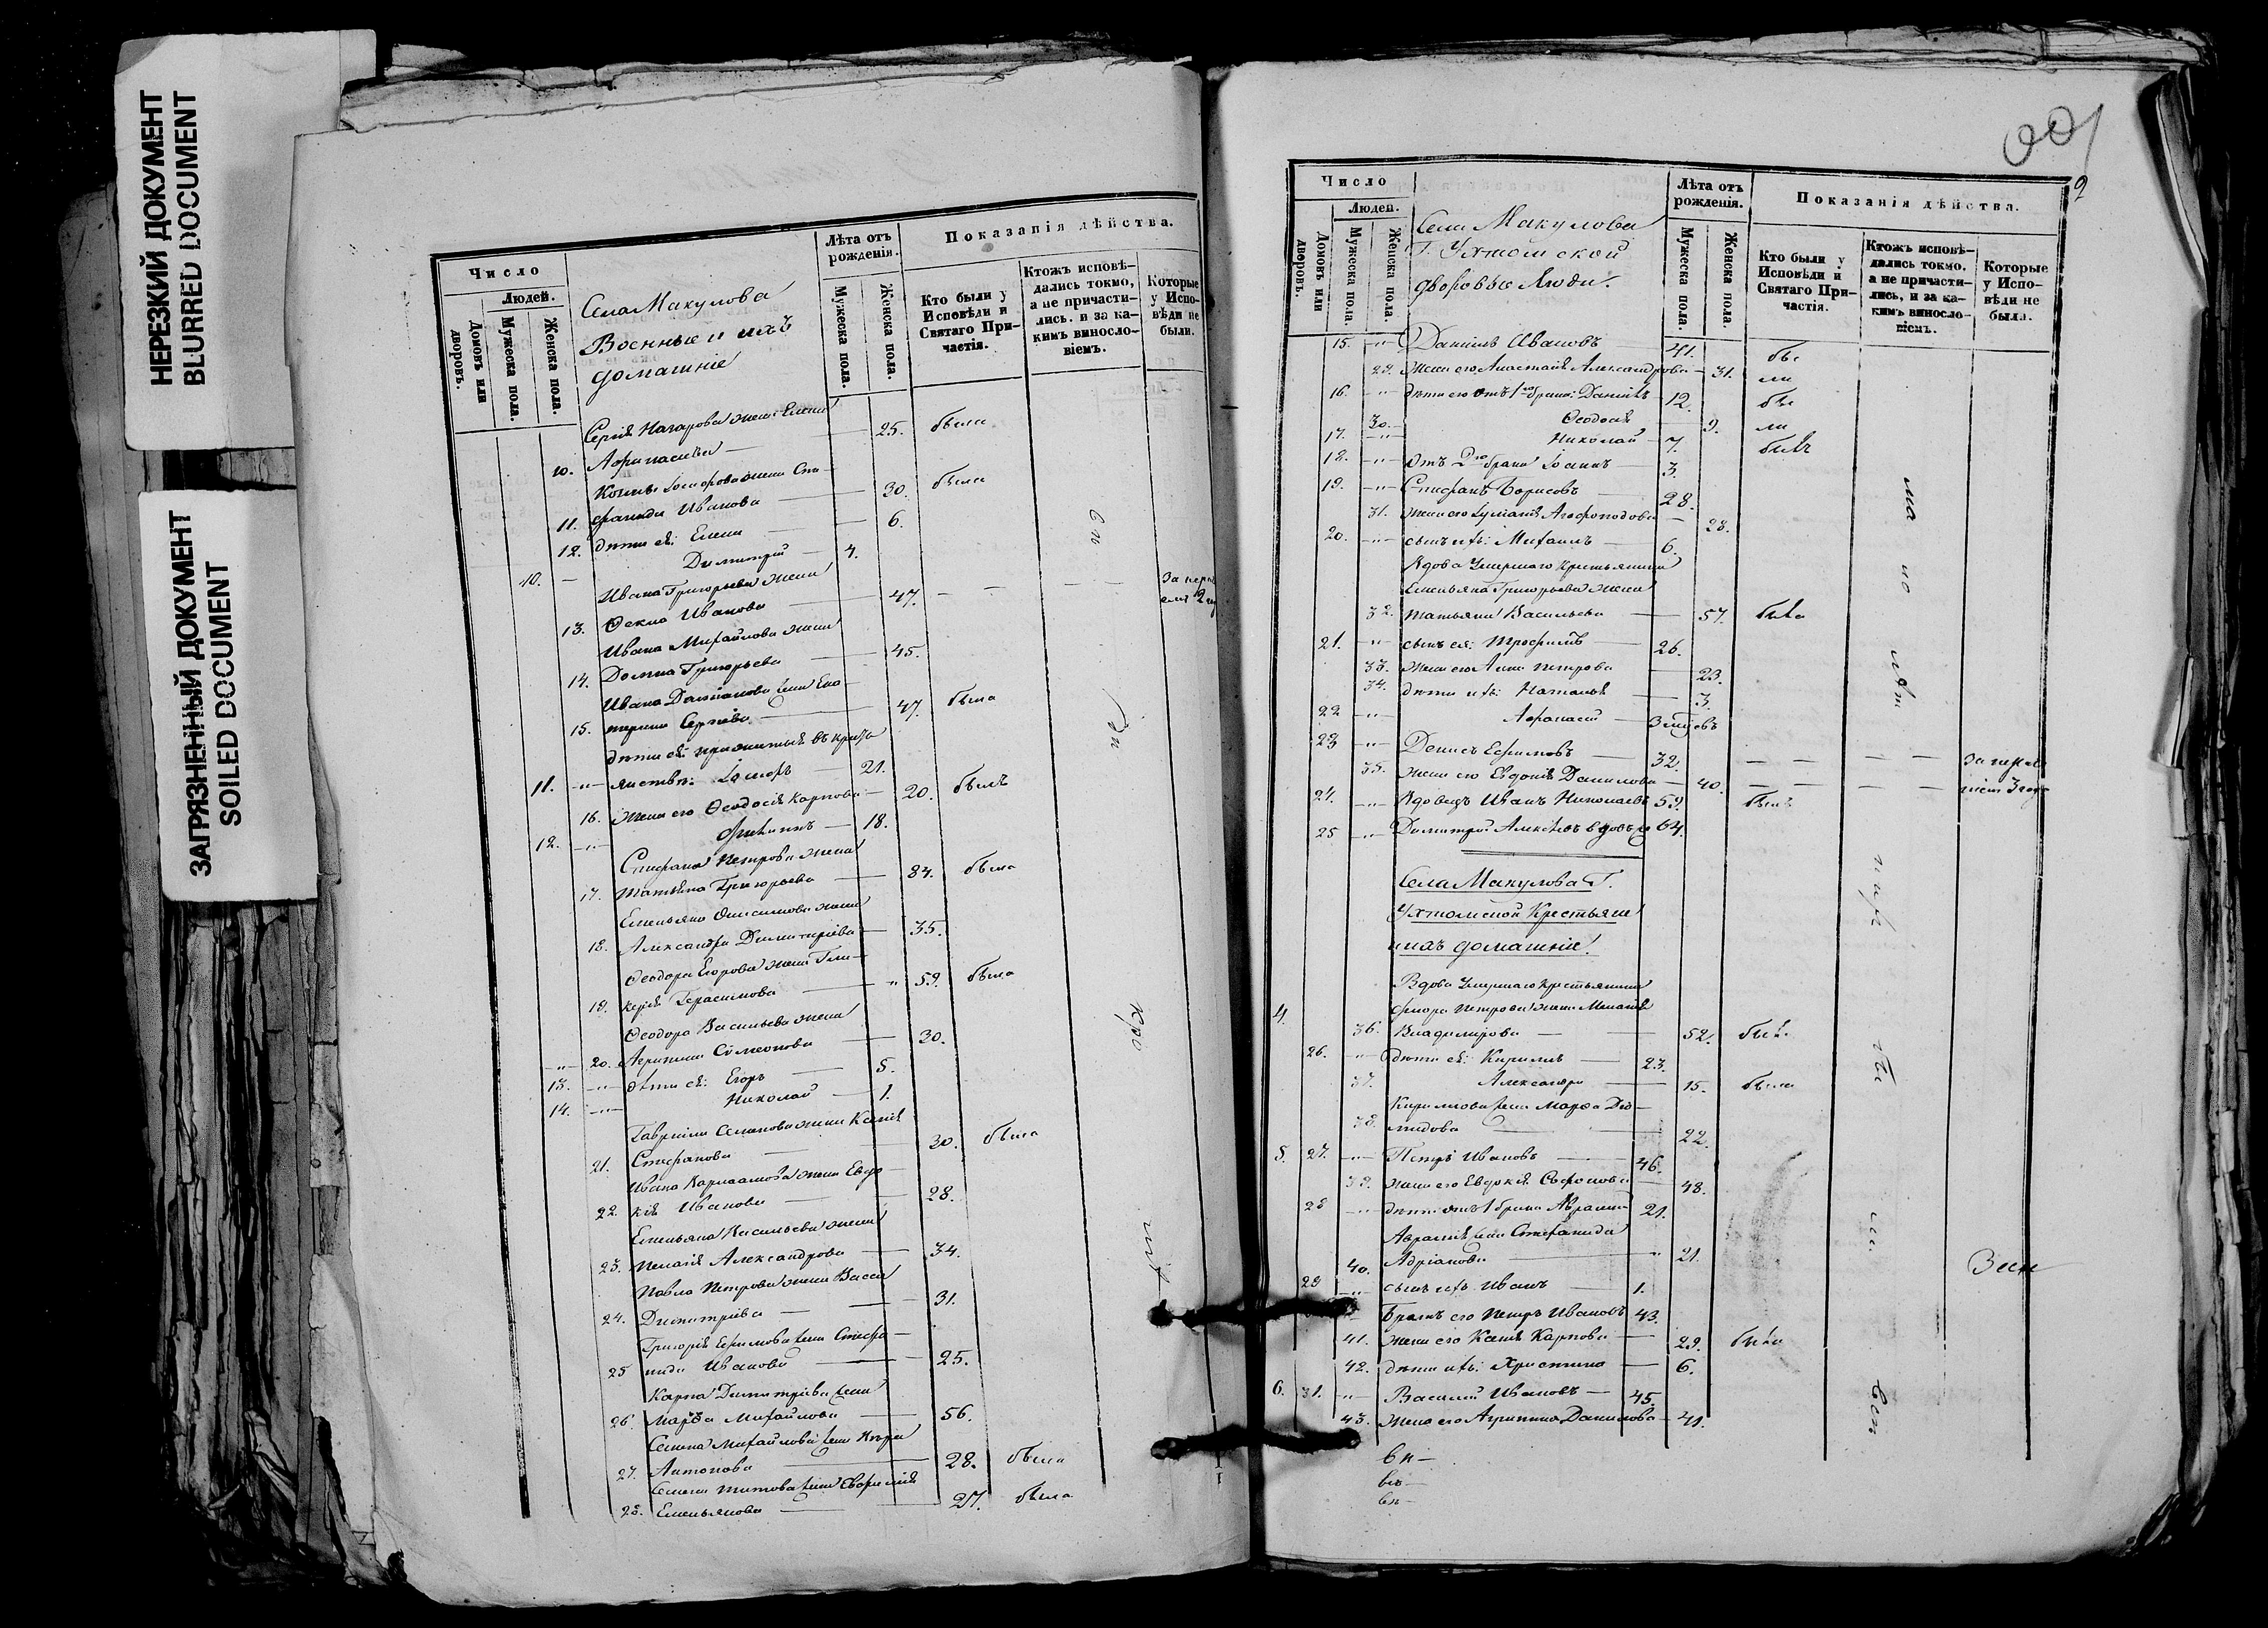 НЕРЕЗКИЙ ДОКУМЕНТ
BLURRED DOCUMENT
ЗАГРЯЗНЕННЫЙ ДОКУМЕНТ
SOILED DOCUMENT
Число
Людей.
Домовъ или дворовъ.
Мужеска пола.
Женска пола.
Села Макулова
Военные и ихъ
домашніе
Лѣта отъ рожденія.
Мужеска пола.
Женска пола.
Показанія дѣйства.
Кто были у Исповѣди и Святаго Причастія.
Ктожъ исповѣдались токмо, а не причастились, и за какимъ винословіемъ.
Которые у Исповѣди не были.
Сергія Назарова жена Елена
10. Афанасьева — 25. была
11. Иванова — 30. была
12. дѣти ея: Елена — 6.
10. — Димитрій — 4.
Ивана Григорьева жена
13. Ѳекла Иванова — 47.
Ивана Михайлова жена
14. Домна Григорьева — 45.
15. Сергіева — 47. была
11. — 21.
16. жена его Ѳеодосія Карпова — 20. былъ
12. — Филиппъ — 18.
Стефана Петрова жена
17. Татьяна Григорьева — 84. была
Емельяна Онисимова жена
18. Александра Димитріева — 35.
Ѳеодора Егорова жена Гли-
19. керія Герасимова — 59. была
Ѳеодора Васильева жена
20. Агрипина Симеонова — 30.
13. — дѣти ея: Егоръ — 5.
14. — Николай — 1.
Гавріила Семенова жена Ксенія
21. Стефанова — 30. была
Ивана Варлаамова жена Евдо-
22. кія Иванова — 28.
Емельяна Васильева жена
23. Пелагія Александрова — 34.
Павла Петрова жена Васса
24. Димитріева — 31.
Григорія Ефимова жена Стефа-
25 нида Иванова — 25.
Карпа Димитріева жена
26. Марѳа Михайлова — 56.
Семена Михайлова жена Вѣра
27. Антонова — 28. была
Семена Титова жена Евфимія
28. Емельянова — 27. была
9
Число
Людей.
Домовъ или дворовъ.
Мужеска пола.
Женска пола.
Села Макулова
Г. Ухтомской
дворовые люди.
Лѣта отъ рожденія.
Мужеска пола.
Женска пола.
Показанія дѣйства.
Кто были у Исповѣди и Святаго Причастія.
Ктожъ исповѣдались токмо, а не причастились, и за какимъ винословіемъ.
Которые у Исповѣди не были.
15. — Даніилъ Ивановъ — 41. бы
29. жена его Анастасія Александрова — 31. ли
16. — дѣти его отъ 1го брака: Даніилъ — 12. бы
30. Ѳеодосія — 9. ли
17. — Николай — 7. былъ
18. — отъ 2го брака Іоаннъ — 3.
19. — Стефанъ Борисовъ — 28.
31. жена его Іуліанія Агафоподова — 28.
20. — сынъ ихъ: Михаилъ — 6.
Вдова умершаго крестьянина
Емельяна Григорьева жена
32. Татьяна Васильева — 57. была
21. — сынъ ея: Трофимъ — 26.
33. жена его Анна Петрова — 23.
34. дѣти ихъ: Наталья — 3.
22 — Афанасій —
23 — Денисъ Ефимовъ — 32.
35. жена его Евдокія Данилова — 40.
24. — Вдовецъ Иванъ Николаевъ 59. былъ
25 — Димитрій Алексѣевъ вдовецъ 64.
Села Макулова Г.
Ухтомской Крестьяне
и ихъ домашніе.
Вдова умершаго крестьянина
4. 36. Владимірова — 52. была
26. — дѣти ея: Кириллъ — 23.
37. Александра — 15. была
Кириллова жена Марѳа Дио-
38. мидова — 22.
5. 27. — Петръ Ивановъ — 46.
39. жена его Евдокія Софонова — 48.
28 — дѣти отъ 1 брака Авраамій 21.
Авраамія жена Стефанида
40. Адріанова — 21.
29 — сынъ ихъ Иванъ — 1.
Братъ его Петръ Ивановъ 43.
41. жена его Ксенія Карпова — 29. была
42. дѣти ихъ: Христина — 6.
6. 31. — Василій Ивановъ — 45.
43. жена его Агрипина Данилова — 41.